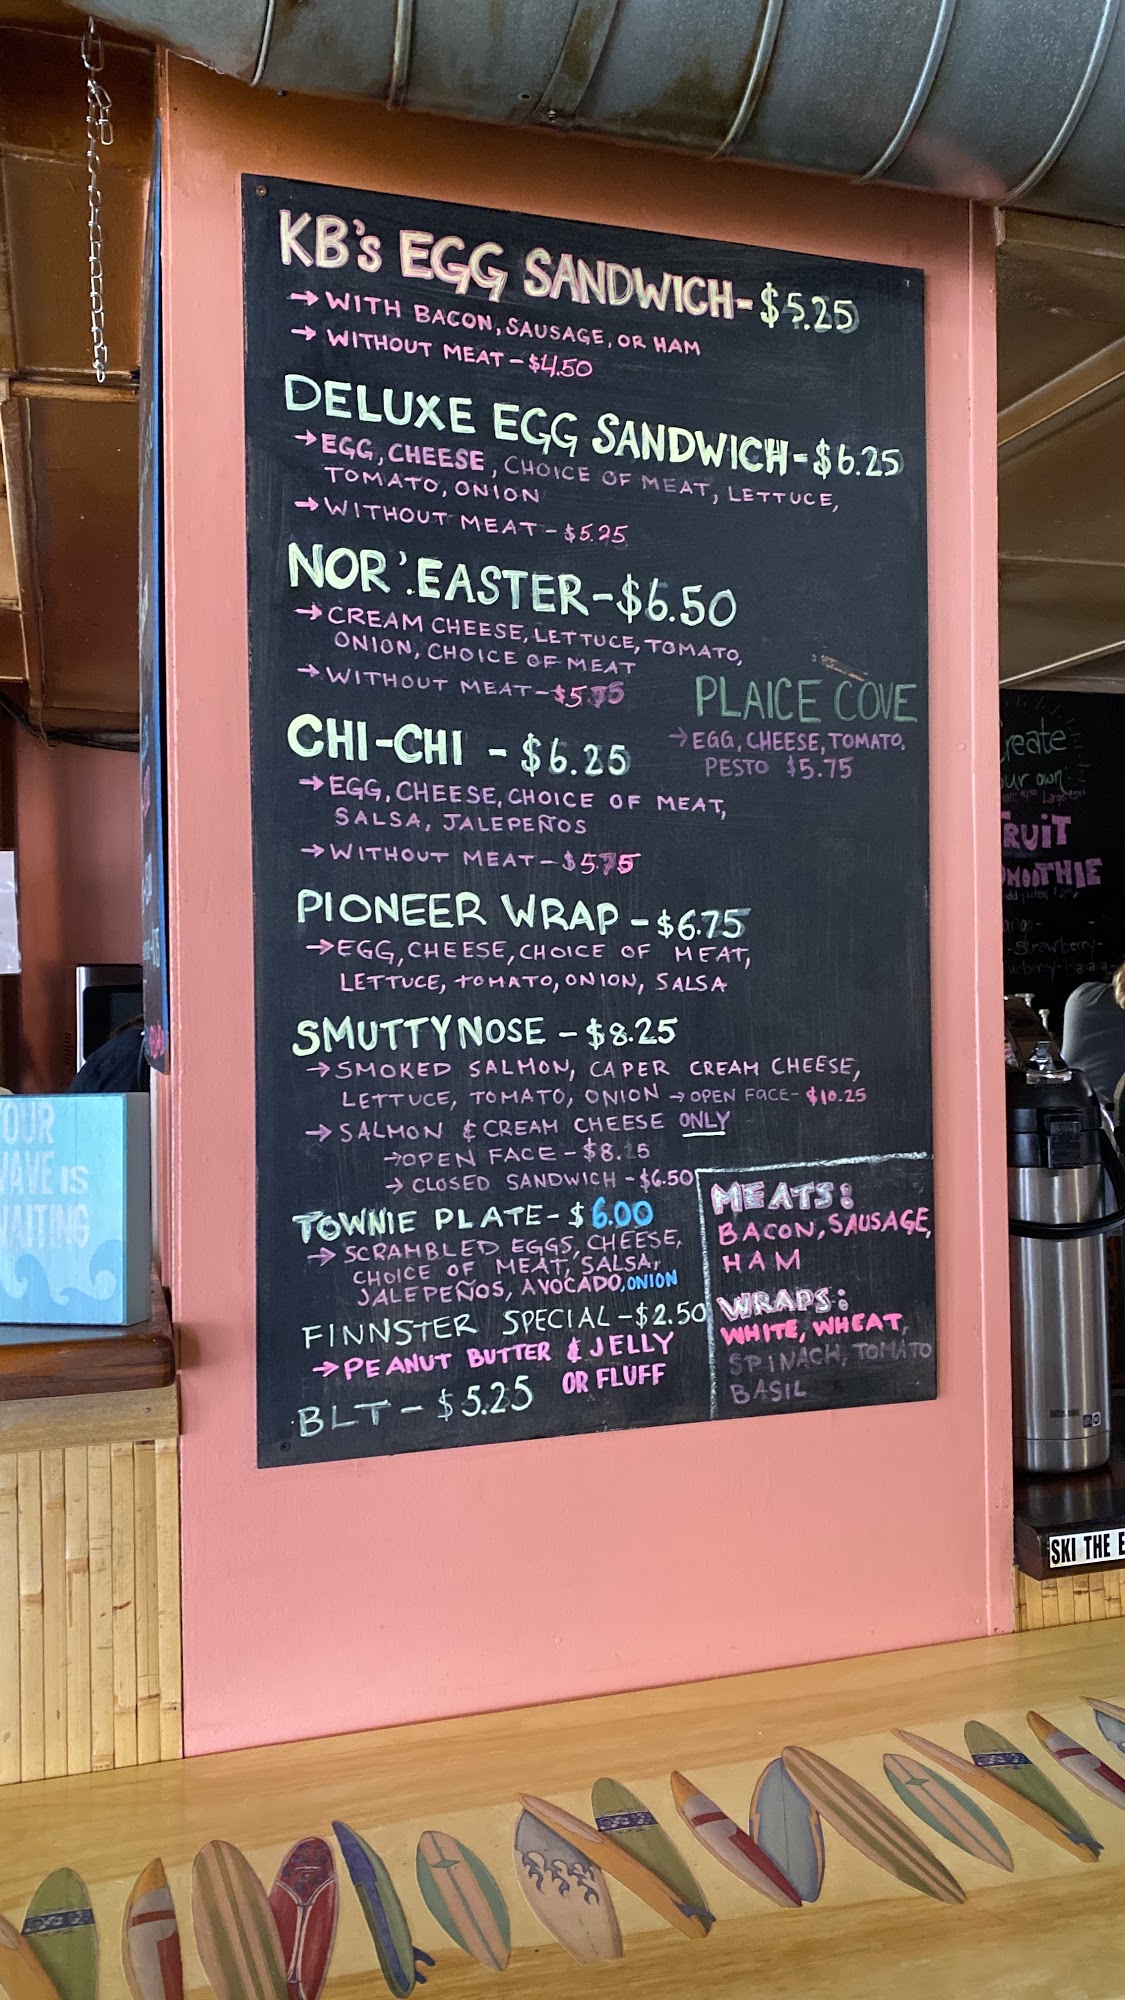 KB's EGG SANDWICH-$5.25
→WITH BACON, SAUSAGE, OR HAM
→WITHOUT MEAT-$4.50
DELUXE EGG SANDWICH-$6.25
→EGG, CHEESE, CHOICE OF MEAT, LETTUCE,
TOMATO, ONION
→WITHOUT MEAT-$5.25
NOR'EASTER-$6.50
→CREAM CHEESE, LETTUCE, TOMATO,
ONION, CHOICE OF MEAT
→WITHOUT MEAT-$5.75
PLAICE COVE
→EGG, CHEESE, TOMATO,
PESTO $5.75
CHI-CHI - $6.25
→EGG, CHEESE, CHOICE OF MEAT,
SALSA, JALEPEÑOS
→WITHOUT MEAT-$5.75
PIONEER WRAP-$6.75
→EGG, CHEESE, CHOICE OF MEAT,
LETTUCE, TOMATO, ONION, SALSA
SMUTTYNOSE -$8.25
→SMOKED SALMON, CAPER CREAM CHEESE,
LETTUCE, TOMATO, ONION →OPEN FACE- $10.25
→SALMON & CREAM CHEESE ONLY
→OPEN FACE-$8.25
→CLOSED SANDWICH-$6.50
TOWNIE PLATE-$6.00
→SCRAMBLED EGGS, CHEESE,
CHOICE OF MEAT, SALSA,
JALEPEÑOS, AVOCADO, ONION
FINNSTER SPECIAL-$2.50
→PEANUT BUTTER & JELLY
OR FLUFF
BLT-$5.25
MEATS:
BACON, SAUSAGE,
HAM
WRAPS:
WHITE, WHEAT,
SPINACH, TOMATO
BASIL
reate
ur own
RUIT
MOOTHIE
-Strawberry-
YOUR
WAVE IS
WAITING
SKI THE E